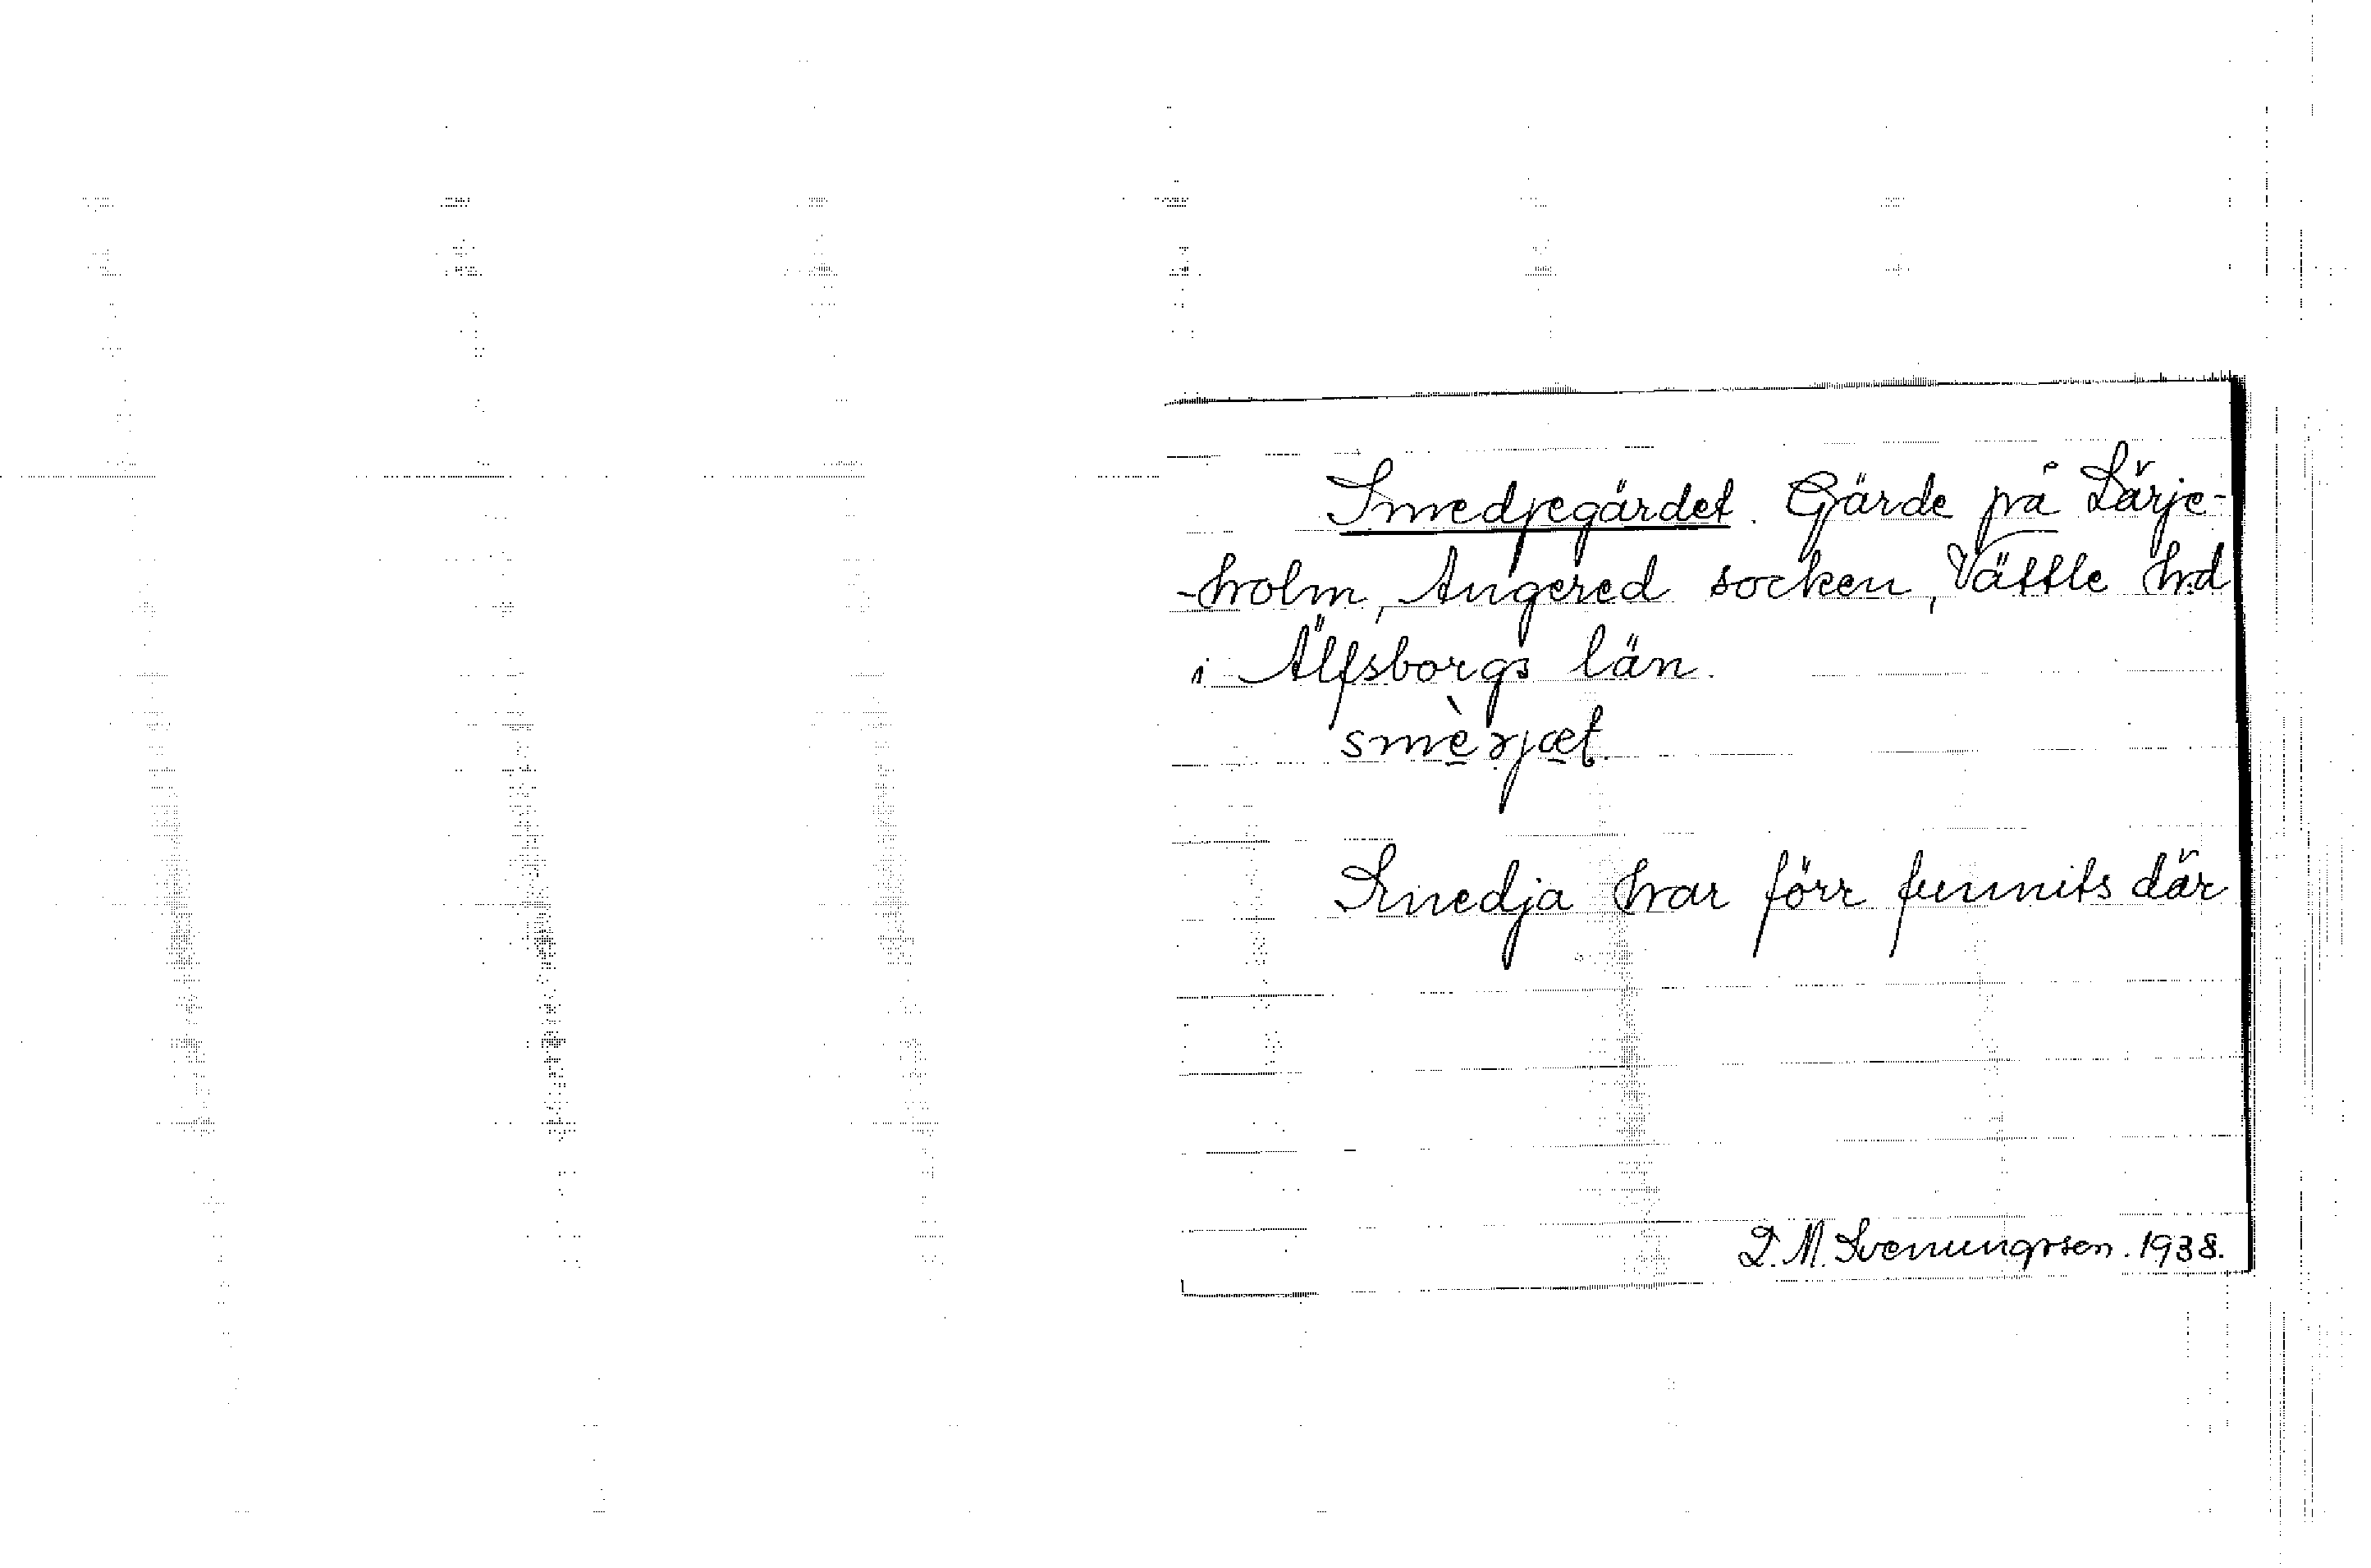 Smedjegärdet. Gärde på Lärje-
-holm, Angered socken, Vättle hd
i Älfsborgs län.
smèrjæt.
Smedja har förr funnits där
D. M. Svenungsson. 1938.